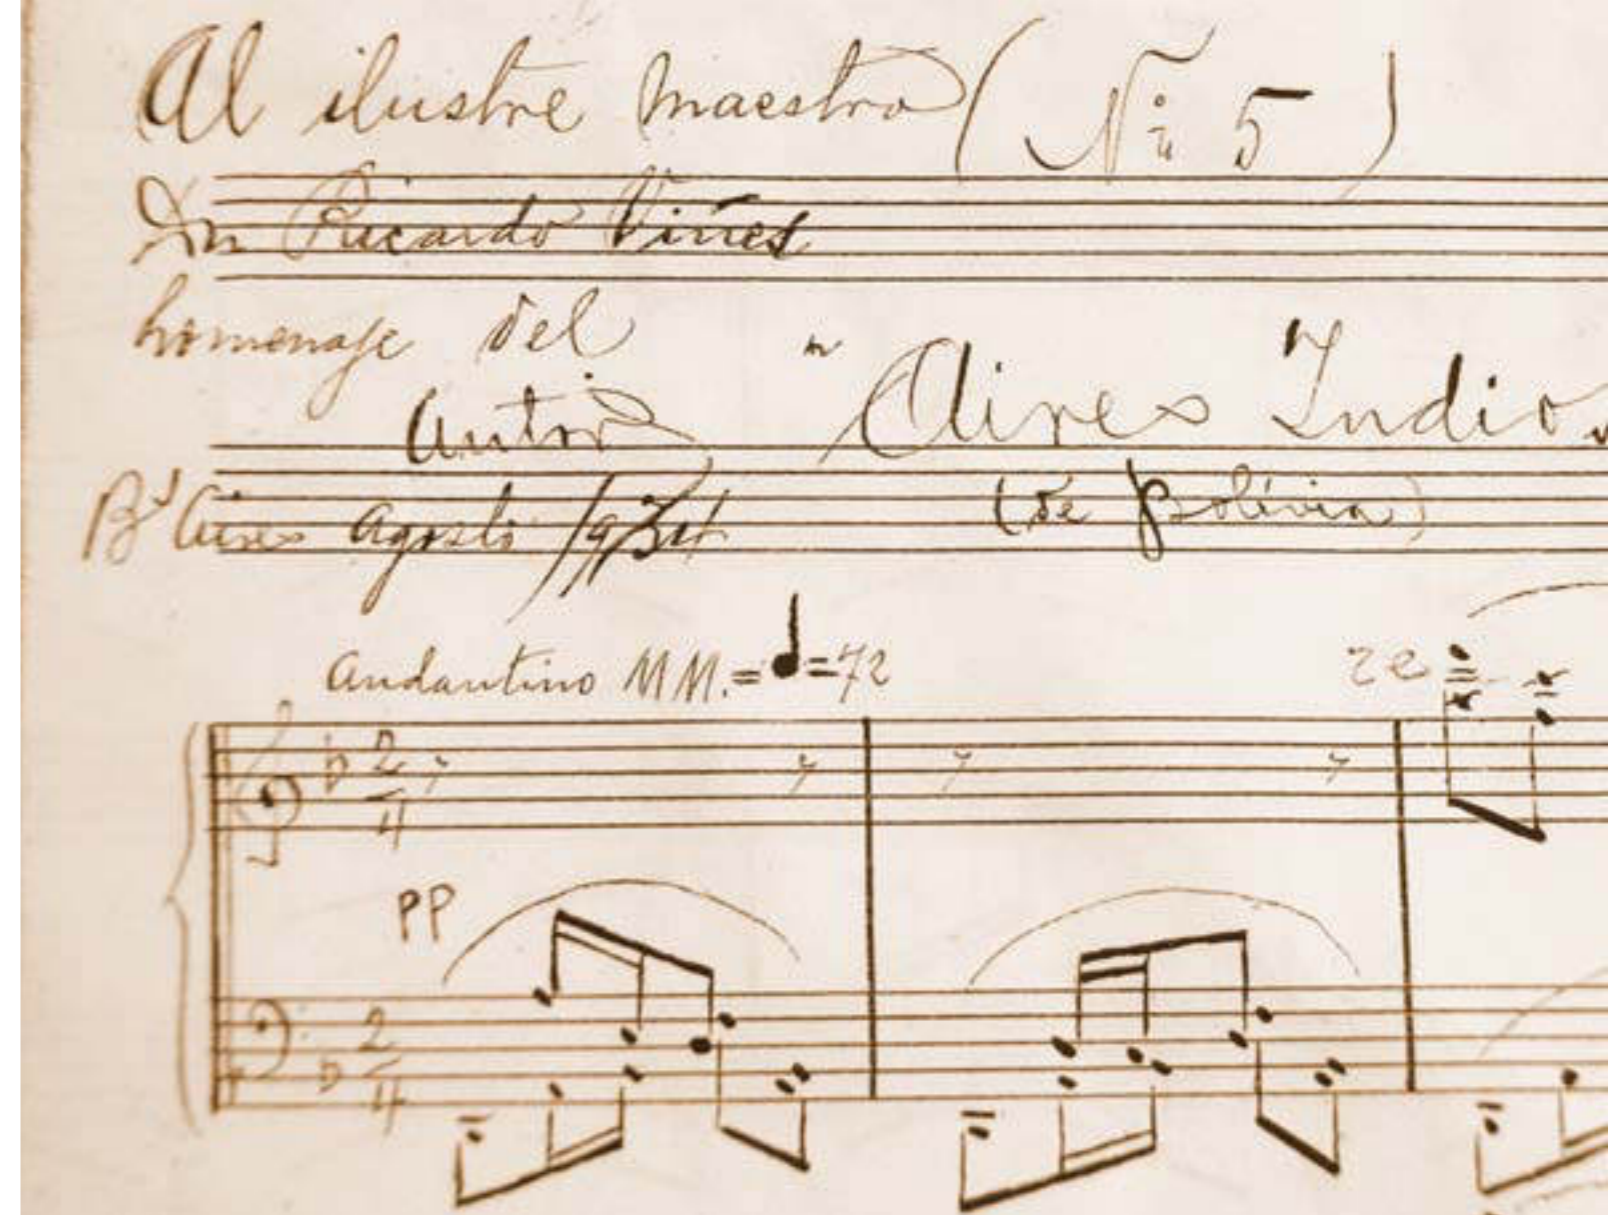 Al ilustre maestro (Nº 5)
Dn Ricardo Viñes
homenaje del
Autor
"Aires Indios
(de Bolivia)
Bs Aires Agosto 1934
Andantino MM.=♩=72
2
4
PP
2
4